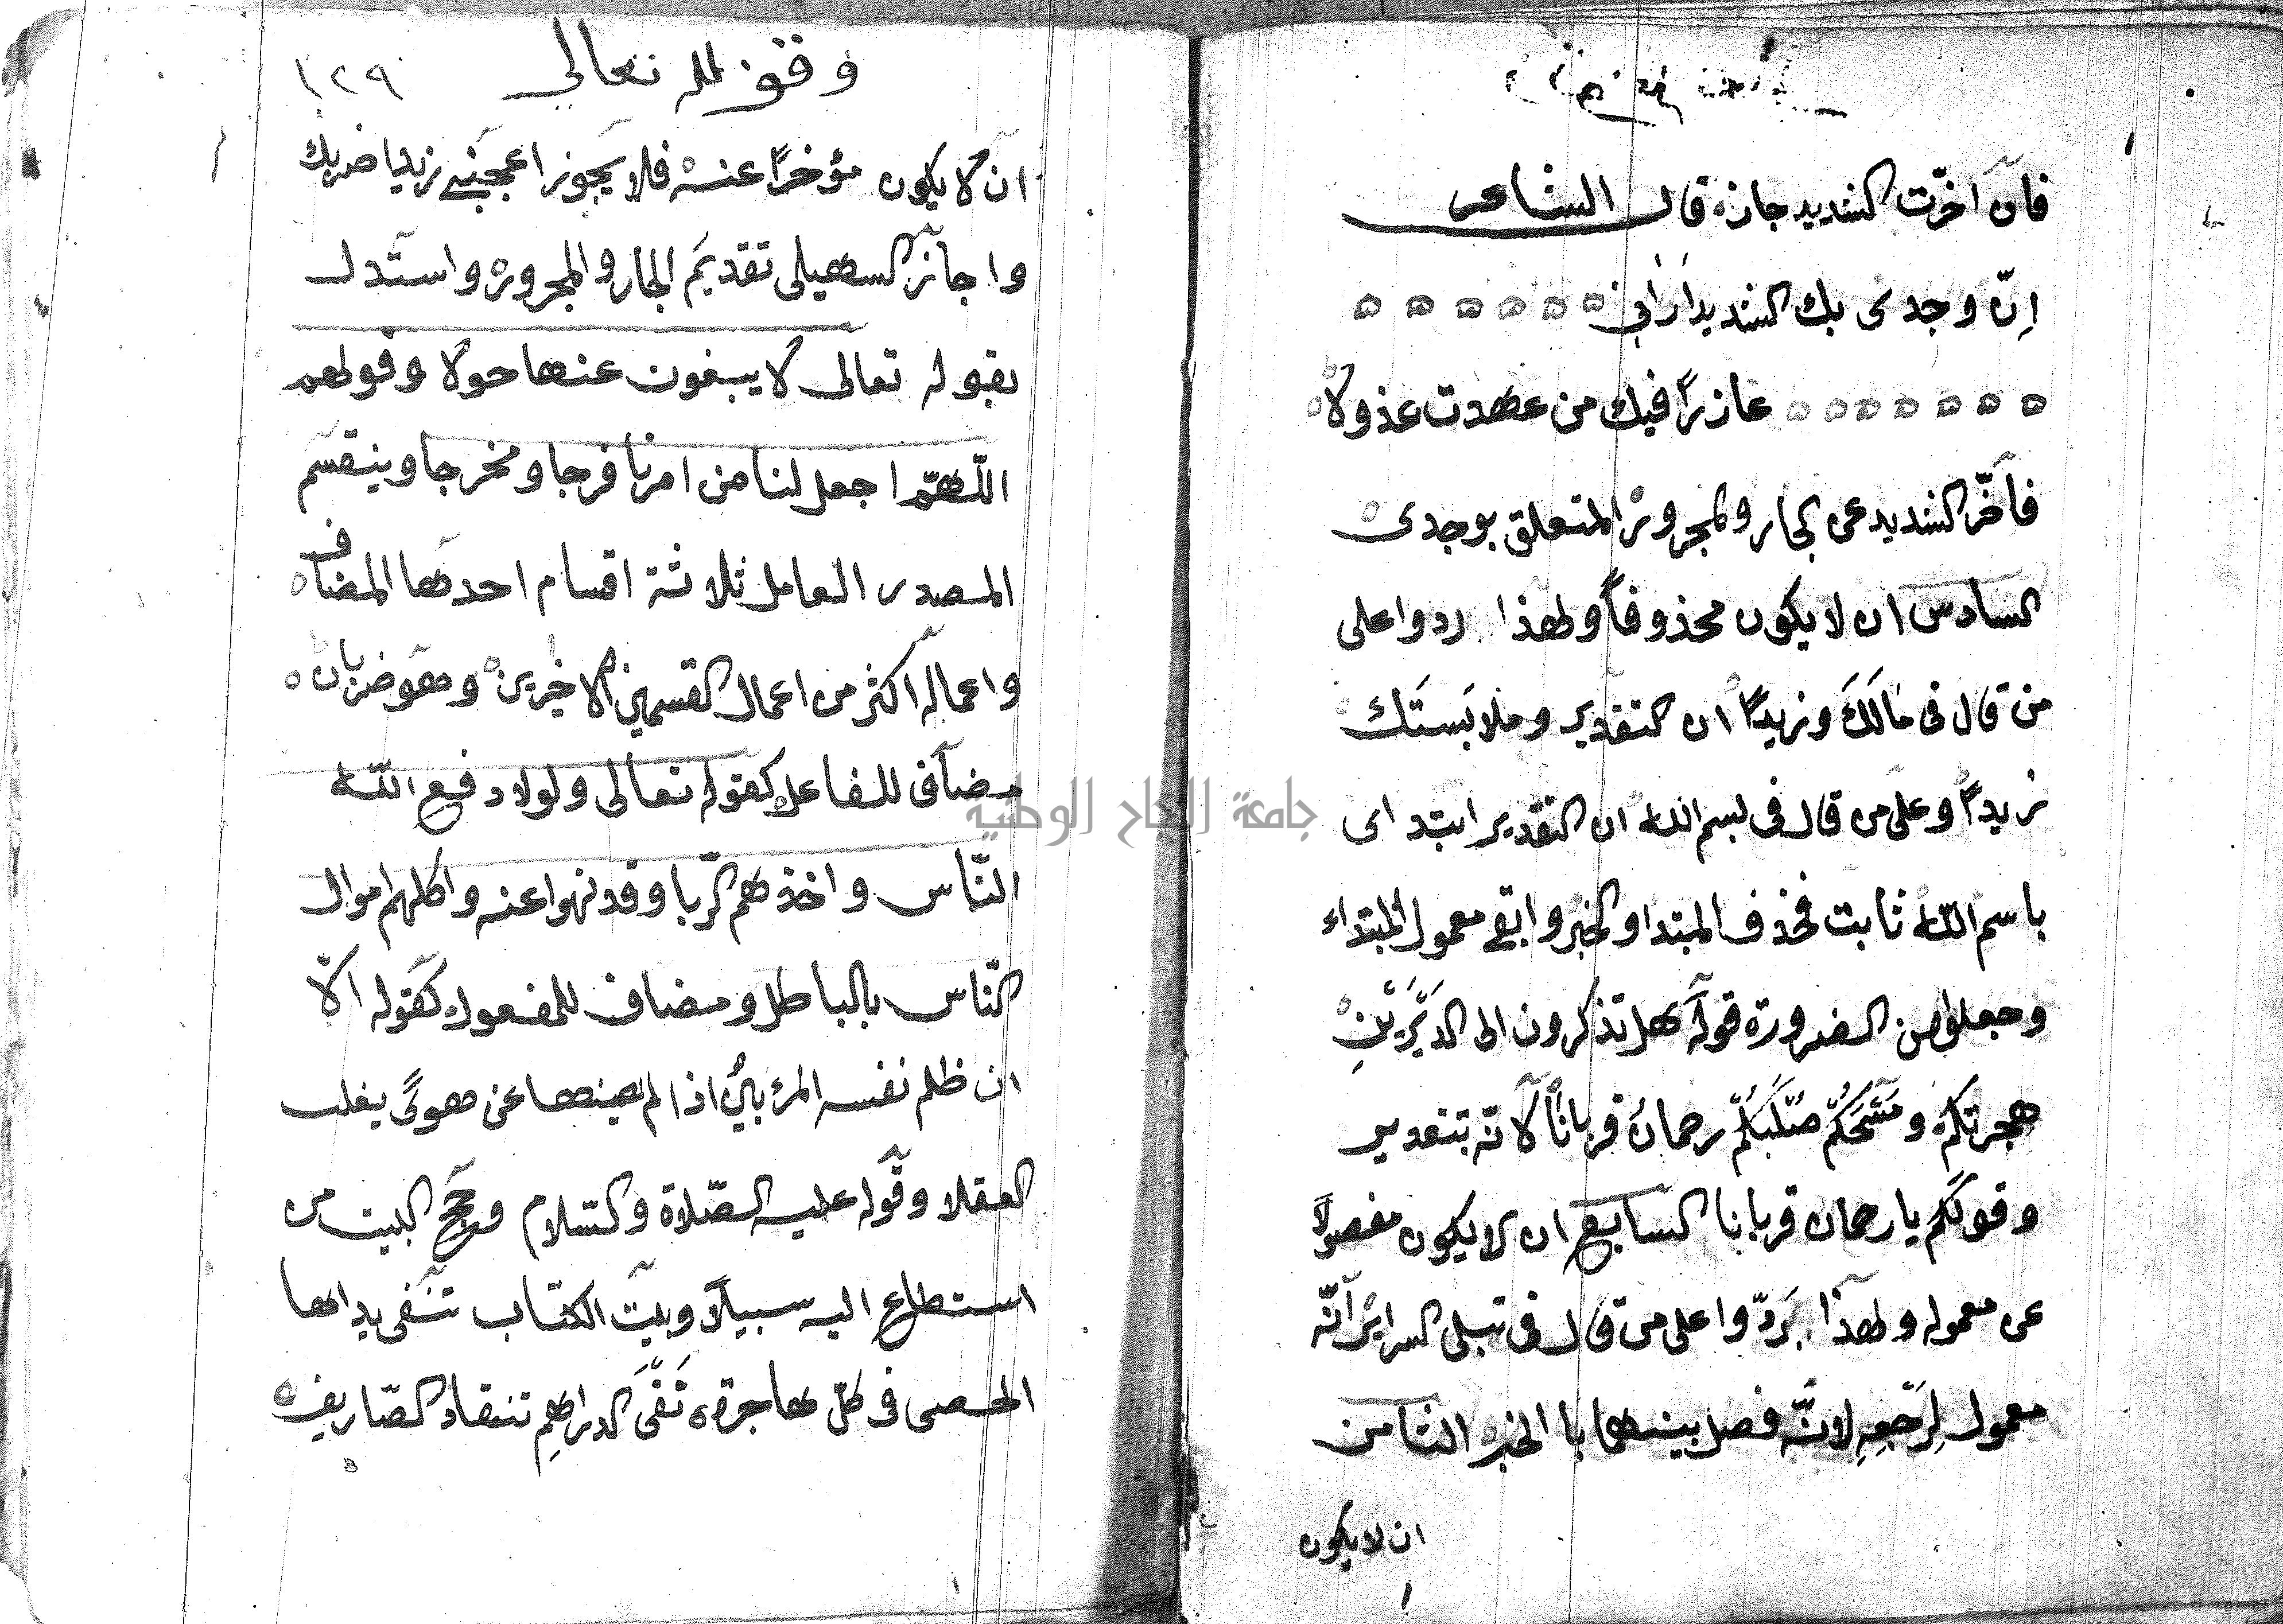 فان اخرت الشديد جازه قال الشاعر
اِنّ وجدى بك الشديد أرانى
عاذرًا فيك من عهدت عذولا
فأخّر الشديد عن الجار والمجرور المتعلق بوجدى
السادس ان لا يكون محذوفاً ولهذا ردوا على
من قال فى مَالَكَ وزيدًا ان التقدير وملابَستَك
زيدًا وعلى من قال فى بسم الله ان التقدير ابتداى
باسم الله ثابت فحذف المبتدا والخبر وابقى معمول المبتداء
وجعلوا من الضرورة قوله هل تذكرون الى الديرَيْنِ
هجرتكم ومَسْحَكُمْ صُلْبَكُمْ رحمانُ قربانًا لانه بتقدير
وقولَكم يا رحمان قربانا السابع ان لا يكون مفصولًا
عن معموله ولهذا ردّوا على من قال فى تبلى السراير انّه
معمول لِرَجْعِهِ لانّه فصل بينهما با الخبر الثامن
ان لا يكون
وقف لله تعالى
١٢٩
ان لا يكون مؤخرًا عنه فلا يجوز اعجبنى زيدا ضربك
واجاز السهيلى تقديم الجار والمجرور واستدل
بقوله تعالى لا يبغون عنها حولا وقولهم
اللّهمّ اجعل لنا من امرنا فرجا ومخرجا وينقسم
المصدر العامل ثلاثة اقسام احدها المضاف
واعماله اكثر من اعمال القسمين الاخيرين وهو ضربان
مضاف للفاعل كقوله تعالى ولولا دفع الله
النّاس واخذهم الرّبا وقد نهوا عنه واكلهم اموال
النّاس بالباطل ومضاف للمفعول كقوله الّا
ان ظلم نفسه المرء بيّن اذا لم يصنها عن هوًى يغلب
العقلا وقوله عليه الصّلاة والسّلام وحج البيت من
استطاع اليه سبيلًا وبيت الكتاب تنفى يداها
الحصى فى كلّ هاجرة نَفْىَ الدراهِمِ تنقاد الصّاريف
جامعة النجاح الوطنية